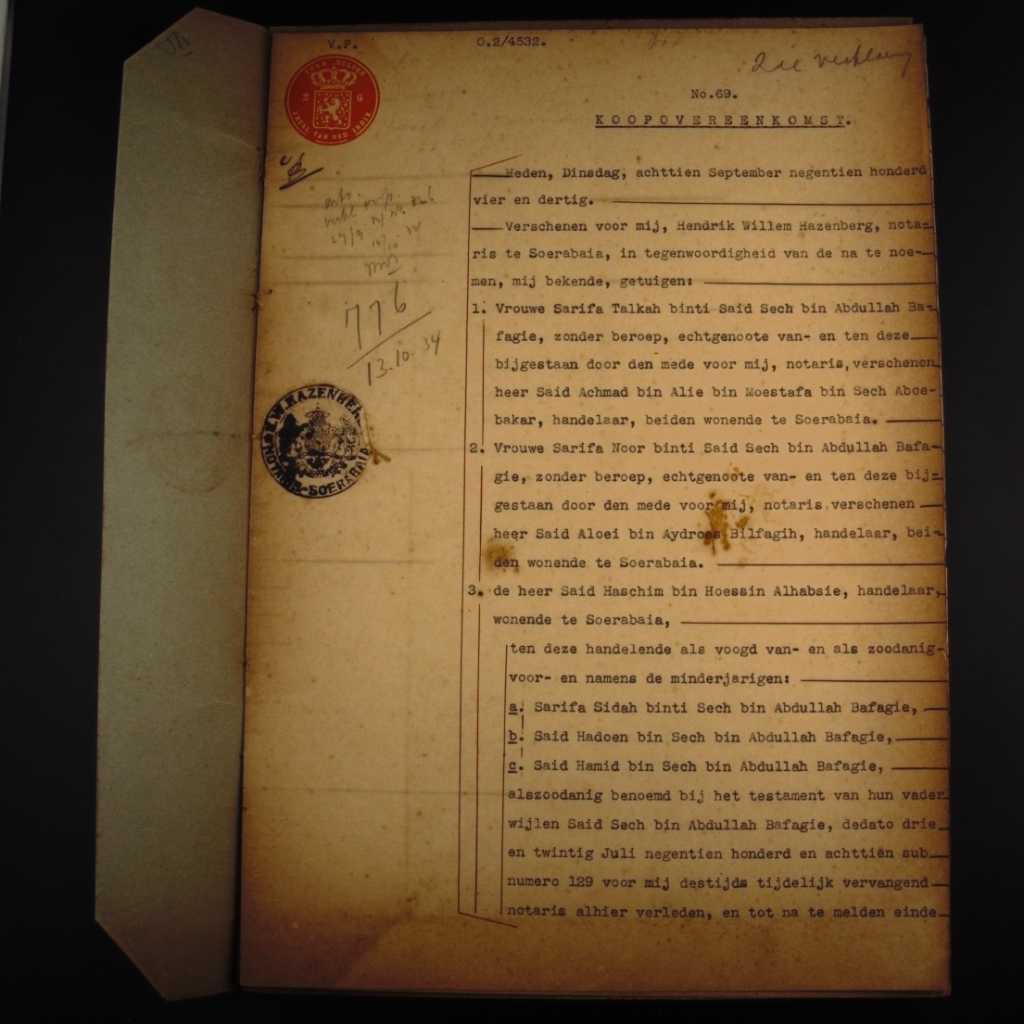 V.P.
O.2/4532.
No.69.
KOOPOVEREENKOMST.
Heden, Dinsdag, achttien September negentien honderd
vier en dertig.
Verschenen voor mij, Hendrik Willem Hazenberg, nota-
ris te Soerabaia, in tegenwoordigheid van de na te noe-
men, mij bekende, getuigen:
1. Vrouwe Sarifa Talkah binti Said Sech bin Abdullah Ba-
fagie, zonder beroep, echtgenoote van- en ten deze
bijgestaan door den mede voor mij, notaris, verschenen
heer Said Achmad bin Alie bin Moestafa bin Sech Aboe-
bakar, handelaar, beiden wonende te Soerabaia.
2. Vrouwe Sarifa Noor binti Said Sech bin Abdullah Bafa-
gie, zonder beroep, echtgenoote van- en ten deze bij-
gestaan door den mede voor mij, notaris verschenen
heer Said Aloei bin Aydroes Bilfagih, handelaar, bei-
den wonende te Soerabaia.
3. de heer Said Haschim bin Hoessin Alhabsie, handelaar,
wonende te Soerabaia,
ten deze handelende als voogd van- en als zoodanig-
voor- en namens de minderjarigen:
a. Sarifa Sidah binti Sech bin Abdullah Bafagie,
b. Said Hadoen bin Sech bin Abdullah Bafagie,
c. Said Hamid bin Sech bin Abdullah Bafagie,
alszoodanig benoemd bij het testament van hun vader
wijlen Said Sech bin Abdullah Bafagie, dedato drie
en twintig Juli negentien honderd en achttien sub
numero 129 voor mij destijds tijdelijk vervangend
notaris alhier verleden, en tot na te melden einde
776
13.10.34
H.W.HAZENBERG
NOTARIS-SOERABAIA